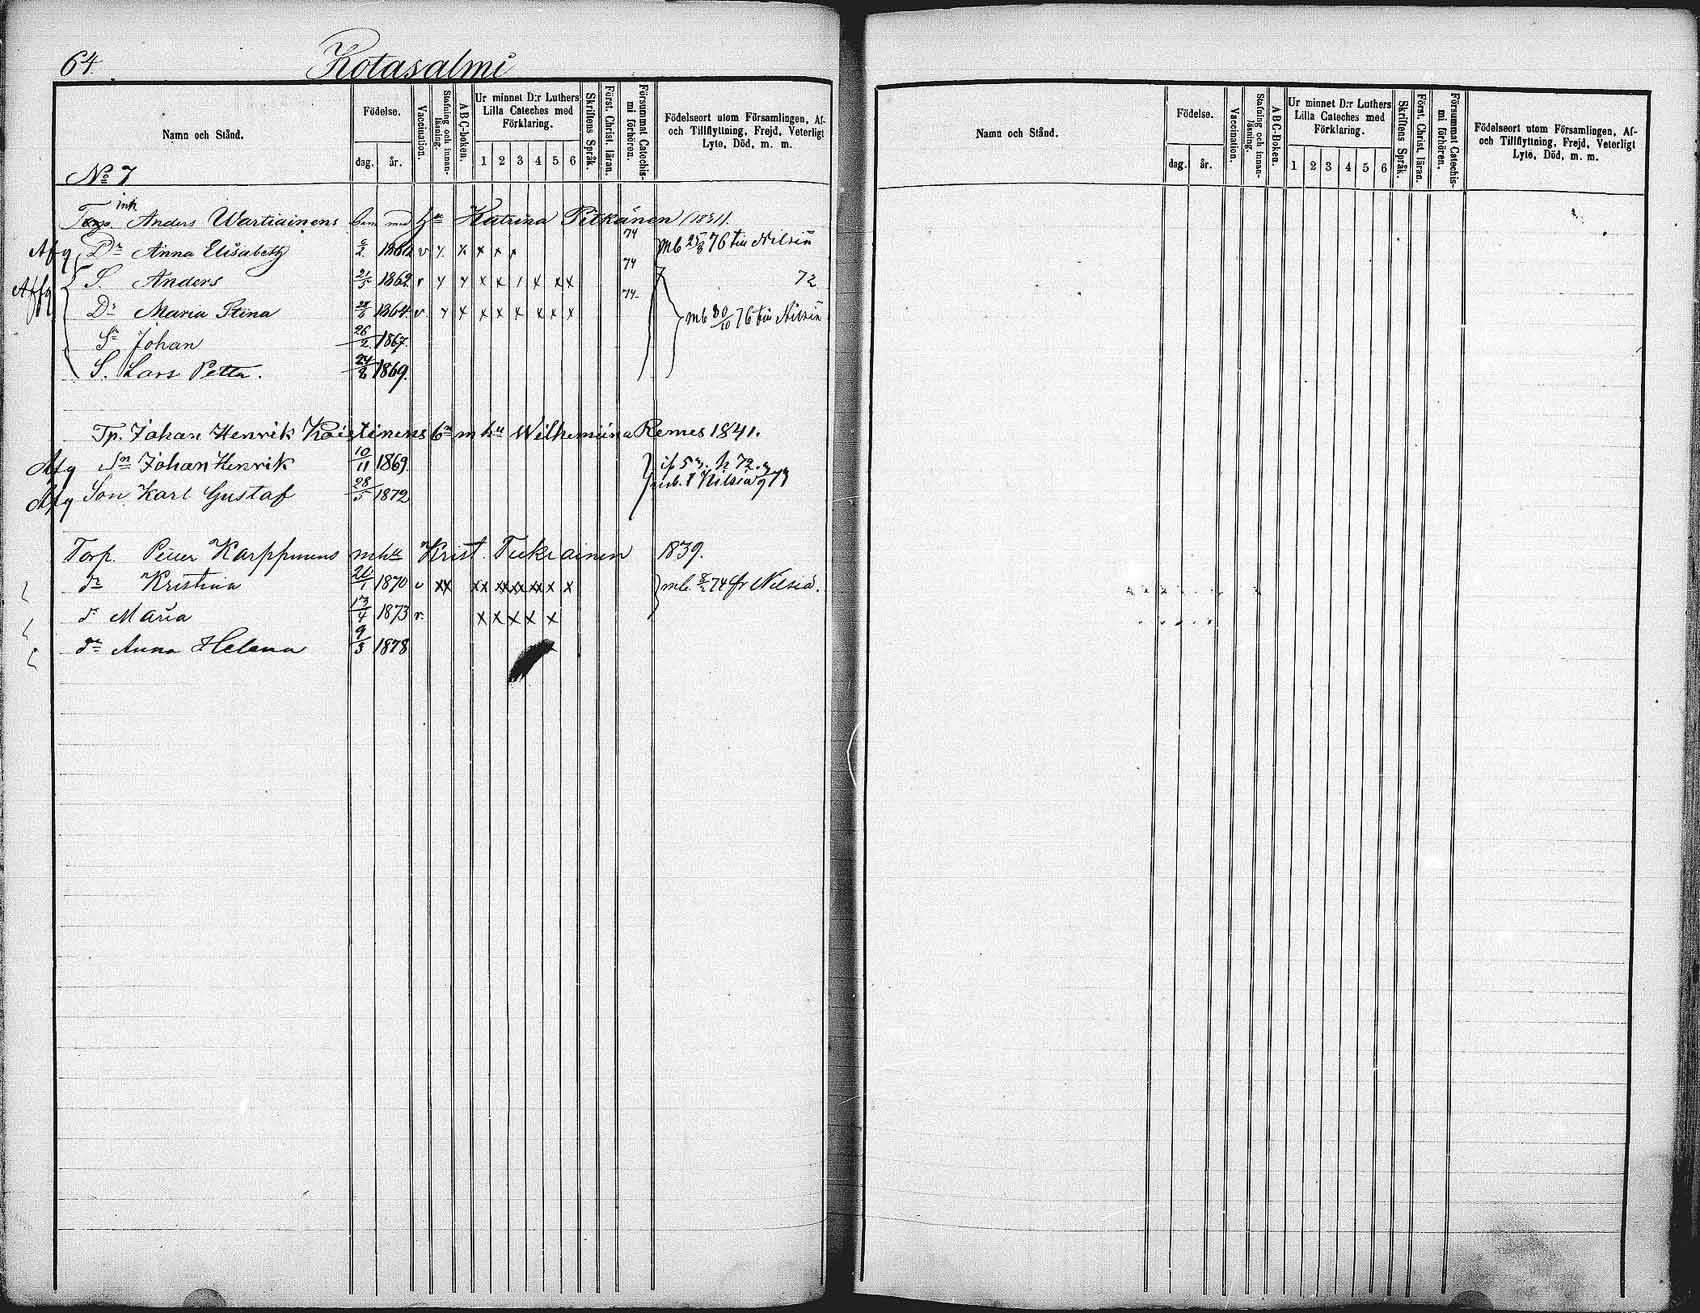 64.
Kotasalmi
Namn och Stånd.
Födelse.
dag.
år.
Vaccination.
Stafning och innan-
läsning.
ABC-boken.
Ur minnet D:r Luthers
Lilla Cateches med
Förklaring.
1 2 3 4 5 6
Skriftens Språk.
Först. Christ. läran.
Försummat Catechis-
mi förhören.
Födelseort utom Församlingen, Af-
och Tillflyttning, Frejd, Veterligt
Lyte, Död, m. m.
No 7
inh
Anders Wartiainens barn med hu Katrina Pitkänen (1831).
Afg Dr Anna Elisabeth 2 186 v x x x x x 74 mb 25/8 76 till Nilsiä
Afg S. Anders 21/5 1862 v y y x x 1 x x x 74 72
Dr Maria Stina 1864 v y x x x x x x x 74 mb 30/10 76 till Nilsiä
Sn Johan 26/2 1867.
S. Lars Petter. 24/8 1869.
Tp. Johan Henrik Koistinens bn m hu Wilhemiina Remes 1841.
Afg Sn Johan Henrik 10/11 1869.
Afg Son Karl Gustaf 28/5 1872 Nilsiä 73
Torp. Petter Karppinens m hu Krist. Tukiainen 1839.
dr Kristina 1870 v xx xx xx xx xx x x mb. 74 fr Nilsiä.
dr Maria 13/4 1873 v. x x x x x
dr Anna Helena 9/3 1878
Namn och Stånd.
Födelse.
dag.
år.
Vaccination.
Stafning och innan-
läsning.
ABC-Boken.
Ur minnet D:r Luthers
Lilla Cateches med
Förklaring.
1 2 3 4 5 6
Skriftens Språk.
Först. Christ. läran.
Försummat Catechis-
mi förhören.
Födelseort utom Församlingen, Af-
och Tillflyttning, Frejd, Veterligt
Lyte, Död, m. m.